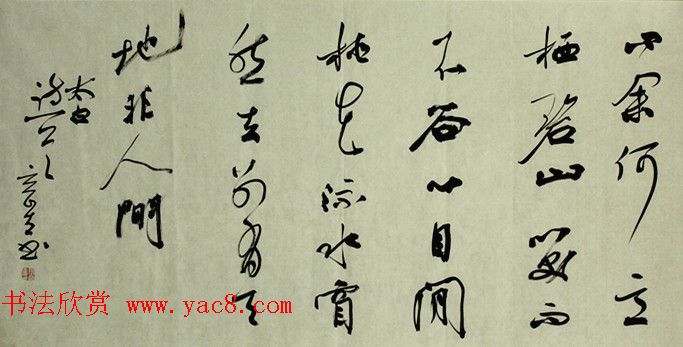 问余何意
栖碧山笑而
不答心自閒
桃花流水窅
然去别有天
地非人間
太白
书法欣赏 www.yac8.com